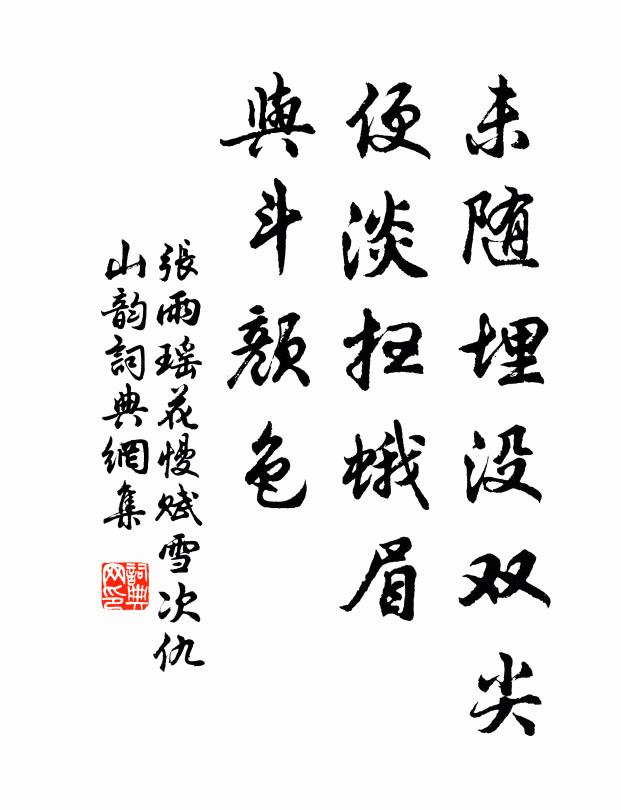 未随埋没双尖
便淡扫蛾眉
與斗颜色
張雨瑶花慢赋雪次仇
山韵詞典網集
詞典
网印